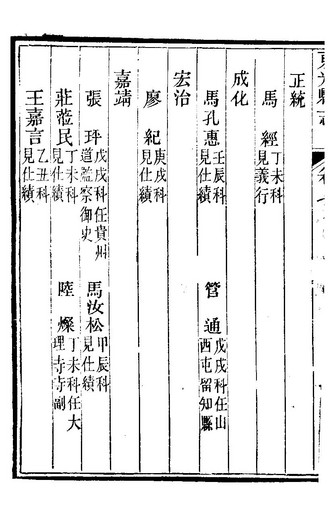 東光縣志
卷
正統
馬經 丁未科見義行
成化
馬孔惠 壬辰科見仕績 管通 戊戌科任山西屯留知縣
宏治
廖紀 庚戌科見仕績
嘉靖
張玶 戊戌科任貴州道監察御史 馬汝松 甲辰科見仕績
莊蒞民 丁未科見仕績 陸燦 丁未科任大理寺寺副
王嘉言 乙丑科見仕績